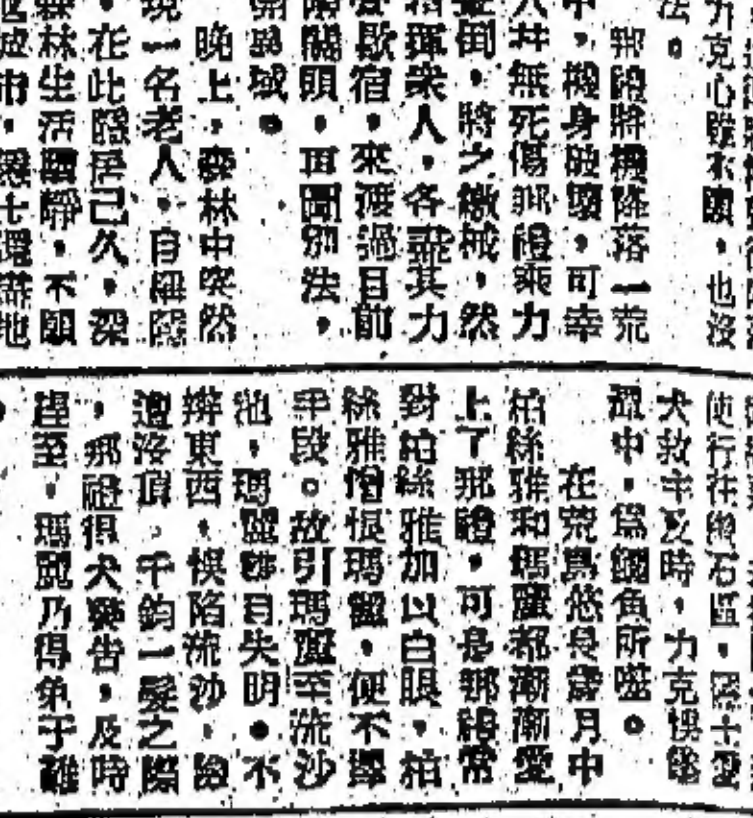 力克心雖不願，也沒
法。
那證將機降落一荒
中，機身破壞，可幸
人幷無死傷那證乘力
倒，將之繳械，然
指揮衆人，各盡其力
歇宿，來渡過目前
關頭，再圖別法，
島域。
晚上，森林中突然
現一名老人，自稱隱
在此隱居已久，深
森林生活寧靜，不願
城市，隱士還帶地
使行往礁石區，隱士愛
犬救主及時，力克誤墮
潭中，爲鱷魚所噬。
在荒島悠長歲月中
柏絲雅和瑪麗都漸漸愛
上了那證，可是那證常
對柏絲雅加以白眼，柏
絲雅憎恨瑪麗，便不擇
手段。故引瑪麗至流沙
池，瑪麗雙目失明，不
辨東西，悞陷流沙，險
遭沒頂，千鈞一髮之際
，那證得犬報告，及時
趕至，瑪麗乃得免于難